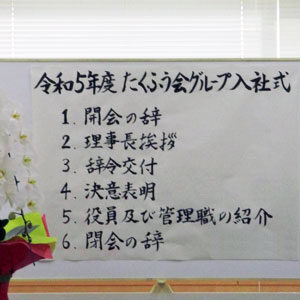 令和5年度 たくふう会グループ入社式
1. 開会の辞
2. 理事長挨拶
3. 辞令交付
4. 決意表明
5. 役員及び管理職の紹介
6. 閉会の辞